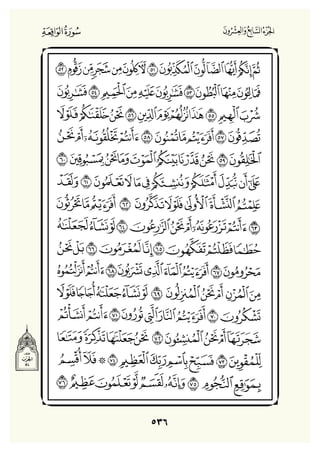 سُورَةُ الوَاقِعَةِ
الجُزْءُ السَّابِعُ وَالعِشْرُونَ
ثُمَّ إِنَّكُمْ أَيُّهَا ٱلضَّآلُّونَ ٱلْمُكَذِّبُونَ ٥١ لَأٓكِلُونَ مِن شَجَرٍ مِّن زَقُّومٍ ٥٢
فَمَالِـُٔونَ مِنْهَا ٱلْبُطُونَ ٥٣ فَشَٰرِبُونَ عَلَيْهِ مِنَ ٱلْحَمِيمِ ٥٤ فَشَٰرِبُونَ
شُرْبَ ٱلْهِيمِ ٥٥ هَٰذَا نُزُلُهُمْ يَوْمَ ٱلدِّينِ ٥٦ نَحْنُ خَلَقْنَٰكُمْ فَلَوْلَا
تُصَدِّقُونَ ٥٧ أَفَرَءَيْتُم مَّا تُمْنُونَ ٥٨ ءَأَنتُمْ تَخْلُقُونَهُۥٓ أَمْ نَحْنُ
ٱلْخَٰلِقُونَ ٥٩ نَحْنُ قَدَّرْنَا بَيْنَكُمُ ٱلْمَوْتَ وَمَا نَحْنُ بِمَسْبُوقِينَ ٦٠
عَلَىٰٓ أَن نُّبَدِّلَ أَمْثَٰلَكُمْ وَنُنشِئَكُمْ فِى مَا لَا تَعْلَمُونَ ٦١ وَلَقَدْ
عَلِمْتُمُ ٱلنَّشْأَةَ ٱلْأُولَىٰ فَلَوْلَا تَذَكَّرُونَ ٦٢ أَفَرَءَيْتُم مَّا تَحْرُثُونَ
٦٣ ءَأَنتُمْ تَزْرَعُونَهُۥٓ أَمْ نَحْنُ ٱلزَّٰرِعُونَ ٦٤ لَوْ نَشَآءُ لَجَعَلْنَٰهُ
حُطَٰمًا فَظَلْتُمْ تَفَكَّهُونَ ٦٥ إِنَّا لَمُغْرَمُونَ ٦٦ بَلْ نَحْنُ
مَحْرُومُونَ ٦٧ أَفَرَءَيْتُمُ ٱلْمَآءَ ٱلَّذِى تَشْرَبُونَ ٦٨ ءَأَنتُمْ أَنزَلْتُمُوهُ
مِنَ ٱلْمُزْنِ أَمْ نَحْنُ ٱلْمُنزِلُونَ ٦٩ لَوْ نَشَآءُ جَعَلْنَٰهُ أُجَاجًا فَلَوْلَا
تَشْكُرُونَ ٧٠ أَفَرَءَيْتُمُ ٱلنَّارَ ٱلَّتِى تُورُونَ ٧١ ءَأَنتُمْ أَنشَأْتُمْ
شَجَرَتَهَآ أَمْ نَحْنُ ٱلْمُنشِـُٔونَ ٧٢ نَحْنُ جَعَلْنَٰهَا تَذْكِرَةً وَمَتَٰعًا
لِّلْمُقْوِينَ ٧٣ فَسَبِّحْ بِٱسْمِ رَبِّكَ ٱلْعَظِيمِ ٧٤ ۞ فَلَآ أُقْسِمُ
بِمَوَٰقِعِ ٱلنُّجُومِ ٧٥ وَإِنَّهُۥ لَقَسَمٌ لَّوْ تَعْلَمُونَ عَظِيمٌ ٧٦
٥٣٦